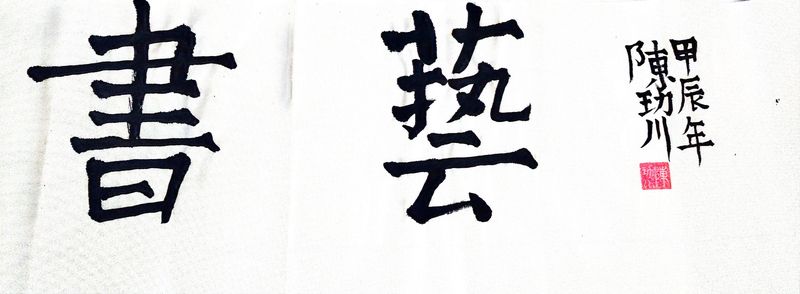 書藝
甲辰年
陳玏川